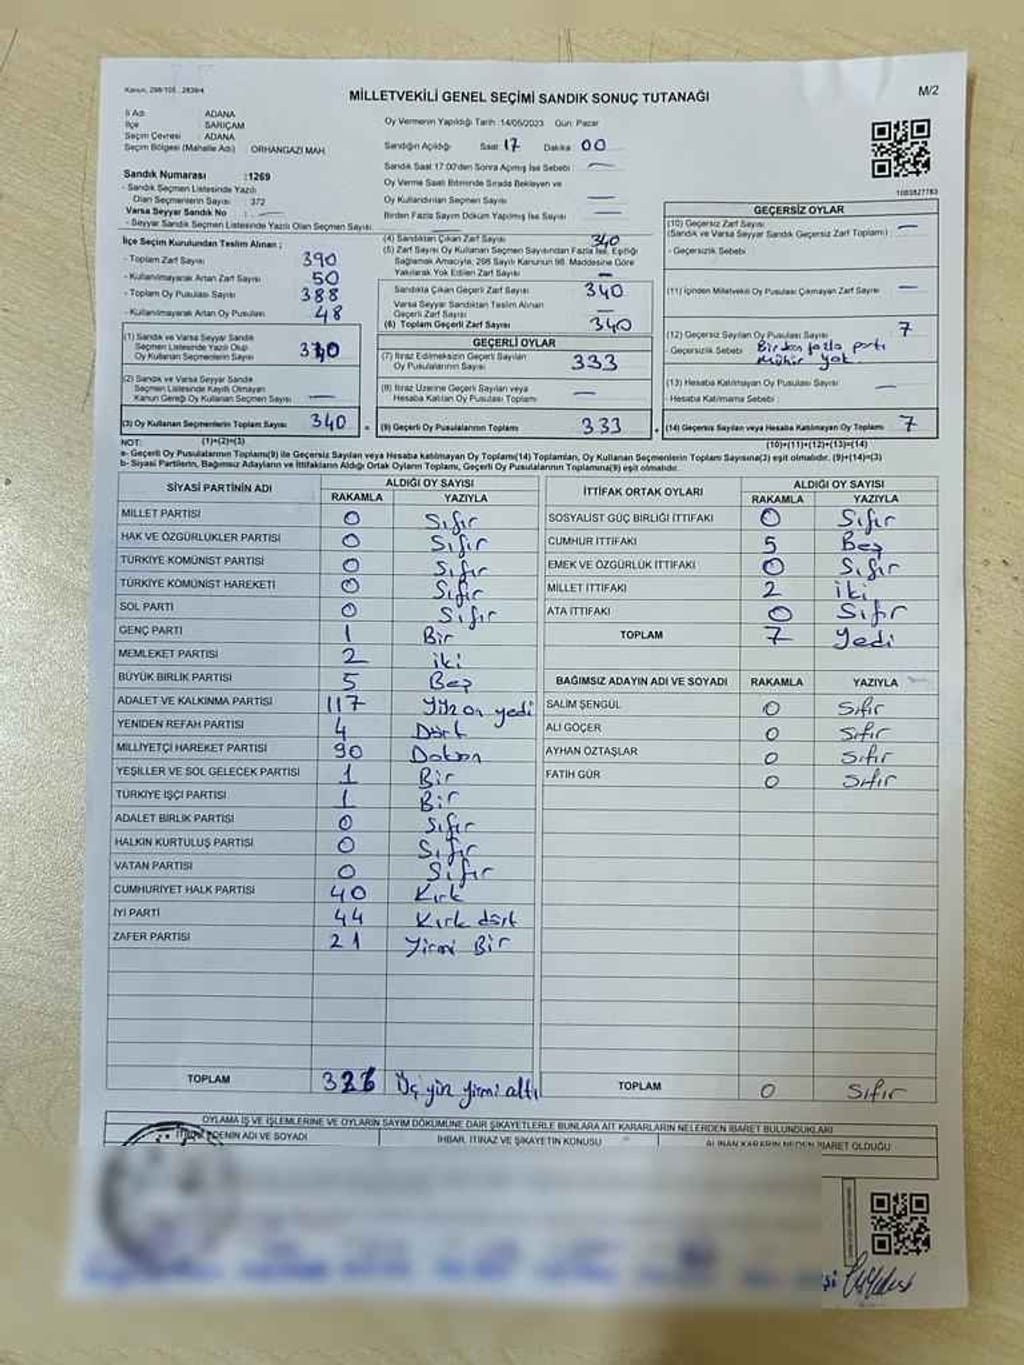 Kanun, 298/105 , 2839/4
MİLLETVEKİLİ GENEL SEÇİMİ SANDIK SONUÇ TUTANAĞI
M/2
İl Adı ADANA
İlçe SARIÇAM
Seçim Çevresi ADANA
Seçim Bölgesi (Mahalle Adı) ORHANGAZİ MAH.
Sandık Numarası :1269
- Sandık Seçmen Listesinde Yazılı
Olan Seçmenlerin Sayısı : 372
Varsa Seyyar Sandık No : —
- Seyyar Sandık Seçmen Listesinde Yazılı Olan Seçmen Sayısı: —
Oy Vermenin Yapıldığı Tarih :14/05/2023 Gün: Pazar
Sandığın Açıldığı Saat 17 Dakika 00
Sandık Saat 17:00'den Sonra Açılmış İse Sebebi : —
Oy Verme Saati Bitiminde Sırada Bekleyen ve
Oy Kullandırılan Seçmen Sayısı —
Birden Fazla Sayım Döküm Yapılmış İse Sayısı : —
1003827763
İlçe Seçim Kurulundan Teslim Alınan ;
- Toplam Zarf Sayısı 390
- Kullanılmayarak Artan Zarf Sayısı 50
- Toplam Oy Pusulası Sayısı 388
- Kullanılmayarak Artan Oy Pusulası 48
(1) Sandık ve Varsa Seyyar Sandık
Seçmen Listesinde Yazılı Olup
Oy Kullanan Seçmenlerin Sayısı 340
(2) Sandık ve Varsa Seyyar Sandık
Seçmen Listesinde Kayıtlı Olmayan
Kanun Gereği Oy Kullanan Seçmen Sayısı —
(3) Oy Kullanan Seçmenlerin Toplam Sayısı 340 =
(4) Sandıktan Çıkan Zarf Sayısı 340
(5) Zarf Sayısı Oy Kullanan Seçmen Sayısından Fazla İse, Eşitliği
Sağlamak Amacıyla, 298 Sayılı Kanunun 98. Maddesine Göre
Yakılarak Yok Edilen Zarf Sayısı —
Sandıkta Çıkan Geçerli Zarf Sayısı 340
Varsa Seyyar Sandıktan Teslim Alınan
Geçerli Zarf Sayısı —
(6) Toplam Geçerli Zarf Sayısı 340
GEÇERLİ OYLAR
(7) İtiraz Edilmeksizin Geçerli Sayılan
Oy Pusulalarının Sayısı 333
(8) İtiraz Üzerine Geçerli Sayılan veya
Hesaba Katılan Oy Pusulası Toplamı —
(9) Geçerli Oy Pusulalarının Toplamı 333 +
GEÇERSİZ OYLAR
(10) Geçersiz Zarf Sayısı —
(Sandık ve Varsa Seyyar Sandık Geçersiz Zarf Toplamı) :
- Geçersizlik Sebebi
(11) İçinden Milletvekili Oy Pusulası Çıkmayan Zarf Sayısı —
(12) Geçersiz Sayılan Oy Pusulası Sayısı 7
- Geçersizlik Sebebi Birden fazla parti
mühür yok
(13) Hesaba Katılmayan Oy Pusulası Sayısı —
- Hesaba Katılmama Sebebi :
(14) Geçersiz Sayılan veya Hesaba Katılmayan Oy Toplamı 7
NOT: (1)+(2)=(3) (10)+(11)+(12)+(13)=(14)
a- Geçerli Oy Pusulalarının Toplamı(9) ile Geçersiz Sayılan veya Hesaba katılmayan Oy Toplamı(14) Toplamları, Oy Kullanan Seçmenlerin Toplam Sayısına(3) eşit olmalıdır. (9)+(14)=(3)
b- Siyasi Partilerin, Bağımsız Adayların ve İttifakların Aldığı Ortak Oyların Toplamı, Geçerli Oy Pusulalarının Toplamına(9) eşit olmalıdır.
SİYASİ PARTİNİN ADI ALDIĞI OY SAYISI
RAKAMLA YAZIYLA
MİLLET PARTİSİ 0 Sıfır
HAK VE ÖZGÜRLÜKLER PARTİSİ 0 Sıfır
TÜRKİYE KOMÜNİST PARTİSİ 0 Sıfır
TÜRKİYE KOMÜNİST HAREKETİ 0 Sıfır
SOL PARTİ 0 Sıfır
GENÇ PARTİ 1 Bir
MEMLEKET PARTİSİ 2 iki
BÜYÜK BİRLİK PARTİSİ 5 Beş
ADALET VE KALKINMA PARTİSİ 117 Yüz on yedi
YENİDEN REFAH PARTİSİ 4 Dört
MİLLİYETÇİ HAREKET PARTİSİ 90 Doksan
YEŞİLLER VE SOL GELECEK PARTİSİ 1 Bir
TÜRKİYE İŞÇİ PARTİSİ 1 Bir
ADALET BİRLİK PARTİSİ 0 Sıfır
HALKIN KURTULUŞ PARTİSİ 0 Sıfır
VATAN PARTİSİ 0 Sıfır
CUMHURİYET HALK PARTİSİ 40 Kırk
İYİ PARTİ 44 Kırk dört
ZAFER PARTİSİ 21 Yirmi Bir
TOPLAM 326 Üç yüz yirmi altı
İTTİFAK ORTAK OYLARI ALDIĞI OY SAYISI
RAKAMLA YAZIYLA
SOSYALİST GÜÇ BİRLİĞİ İTTİFAKI 0 Sıfır
CUMHUR İTTİFAKI 5 Beş
EMEK VE ÖZGÜRLÜK İTTİFAKI 0 Sıfır
MİLLET İTTİFAKI 2 iki
ATA İTTİFAKI 0 Sıfır
TOPLAM 7 Yedi
BAĞIMSIZ ADAYIN ADI VE SOYADI RAKAMLA YAZIYLA
SALİM ŞENGÜL 0 Sıfır
ALİ GÖÇER 0 Sıfır
AYHAN ÖZTAŞLAR 0 Sıfır
FATİH GÜR 0 Sıfır
TOPLAM 0 Sıfır
OYLAMA İŞ VE İŞLEMLERİNE VE OYLARIN SAYIM DÖKÜMÜNE DAİR ŞİKAYETLERLE BUNLARA AİT KARARLARIN NELERDEN İBARET BULUNDUKLARI
EDENİN ADI VE SOYADI İHBAR, İTİRAZ VE ŞİKAYETİN KONUSU ALINAN KARARIN NEDEN İBARET OLDUĞU